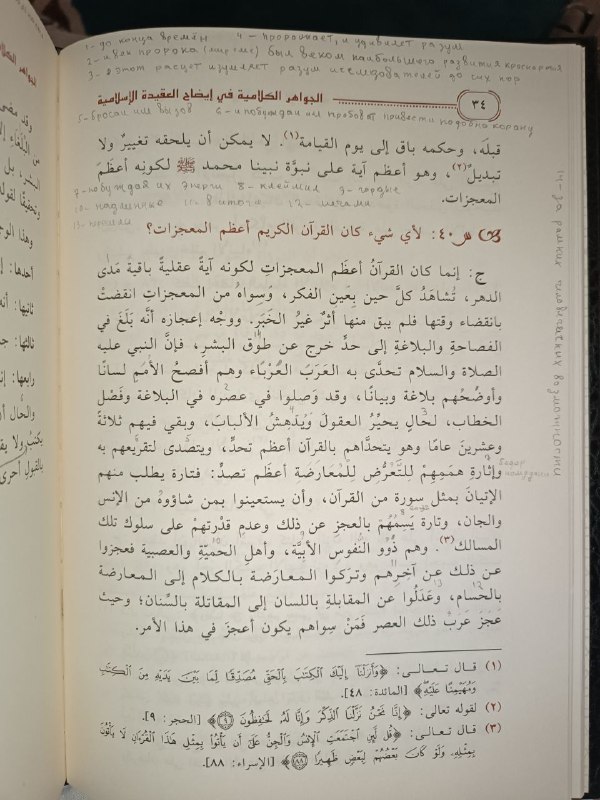 1- до конца времён 4 - поражает, и удивляет разум
2- и век пророка (мир ему) был веком наибольшего развития красноречия
3- этот расцвет изумляет разум исследователей до сих пор
الجواهر الكلامية في إيضاح العقيدة الإسلامية
٣٤
5- бросаи им вызов 6- и побуждаи им пробовать привести подобно корану
قبلَه، وحكمه باق إلى يوم القيامة(١). لا يمكن أن يلحقه تغييرٌ ولا
تبديل(٢)، وهو أعظم آية على نبوَّة نبينا محمد ﷺ لكونِه أعظَمَ
المعجزات.
7- побуждая их энерги 8- клеймил 9- гордые
10- надменные 11- в итоге 12- мечами
13- копьями
س٤٠: لأي شيء كان القرآن الكريم أعظم المعجزات؟
ج: إنما كان القرآنُ أعظَم المعجزاتِ لكونه آيةً عقليةً باقيةً مَدَى
الدهر، تُشاهَدُ كلَّ حين بِعَين الفكر، وَسِواهُ من المعجزاتِ انقضتْ
بانقضاء وقتها فلم يبق منها أثرٌ غيرُ الخَبَرِ. ووجْه إعجازه أنَّه بَلَغَ في
الفصاحةِ والبلاغةِ إلى حدٍّ خرج عن طَوْق البشرِ، فإنَّ النبي عليه
الصلاة والسلام تحدَّى به العَرَبَ العُرْبَاء وهم أفصحُ الأممِ لسانًا
وأوضَحُهم بلاغة وبيانًا، وقد وَصلوا في عصرِه في البلاغة وفَصْل
الخطاب، لحَالٍ يحيِّرُ العقولَ وَيُدْهِشُ الألبابَ، وبقي فيهم ثلاثةً
وعشرينَ عامًا وهو يتحدَّاهم بالقرآن أعظم تحدٍّ، ويتصدَّى لتقريعهم به
وإثارةِ هِمَمِهِمْ للتَّعَرُّض لِلْمُعارَضة أعظَم تصدٍّ: فتارة يطلب منهم
الإتيانَ بمثل سورة من القرآن، وأن يستعينوا بمن شاؤوهُ من الإنس
والجان، وتارة يَسِمُهُمْ بالعجزِ عن ذلك وعدمِ قدْرتهمْ على سلوك تلك
المسالك(٣). وهم ذَوُو النفوس الأبيَّة، وأهلِ الحَميَّةِ والعصبية فعجزوا
عن ذلك عن آخِرِهم وتركوا المعارَضة بالكلام إلى المعارضة
بالحُسام، وعَدَلُوا عن المقابلةِ باللسان إلى المقاتلة بالسِّنان؛ وحيث
عَجَزَ عَرَبُ ذلك العصرِ فَمَنْ سِواهم يكون أعجزَ في هذا الأمر.
(١) قال تعالى: ﴿وَأَنزَلْنَا إِلَيْكَ الْكِتَابَ بِالْحَقِّ مُصَدِّقًا لِّمَا بَيْنَ يَدَيْهِ مِنَ الْكِتَابِ
وَمُهَيْمِنًا عَلَيْهِ﴾ [المائدة: ٤٨].
(٢) لقوله تعالى: ﴿إِنَّا نَحْنُ نَزَّلْنَا الذِّكْرَ وَإِنَّا لَهُ لَحَافِظُونَ ۝٩﴾ [الحجر: ٩].
(٣) قال تعالى: ﴿قُل لَّئِنِ اجْتَمَعَتِ الْإِنسُ وَالْجِنُّ عَلَىٰ أَن يَأْتُوا بِمِثْلِ هَٰذَا الْقُرْءَانِ لَا يَأْتُونَ
بِمِثْلِهِ وَلَوْ كَانَ بَعْضُهُمْ لِبَعْضٍ ظَهِيرًا ۝٨٨﴾ [الإسراء: ٨٨].